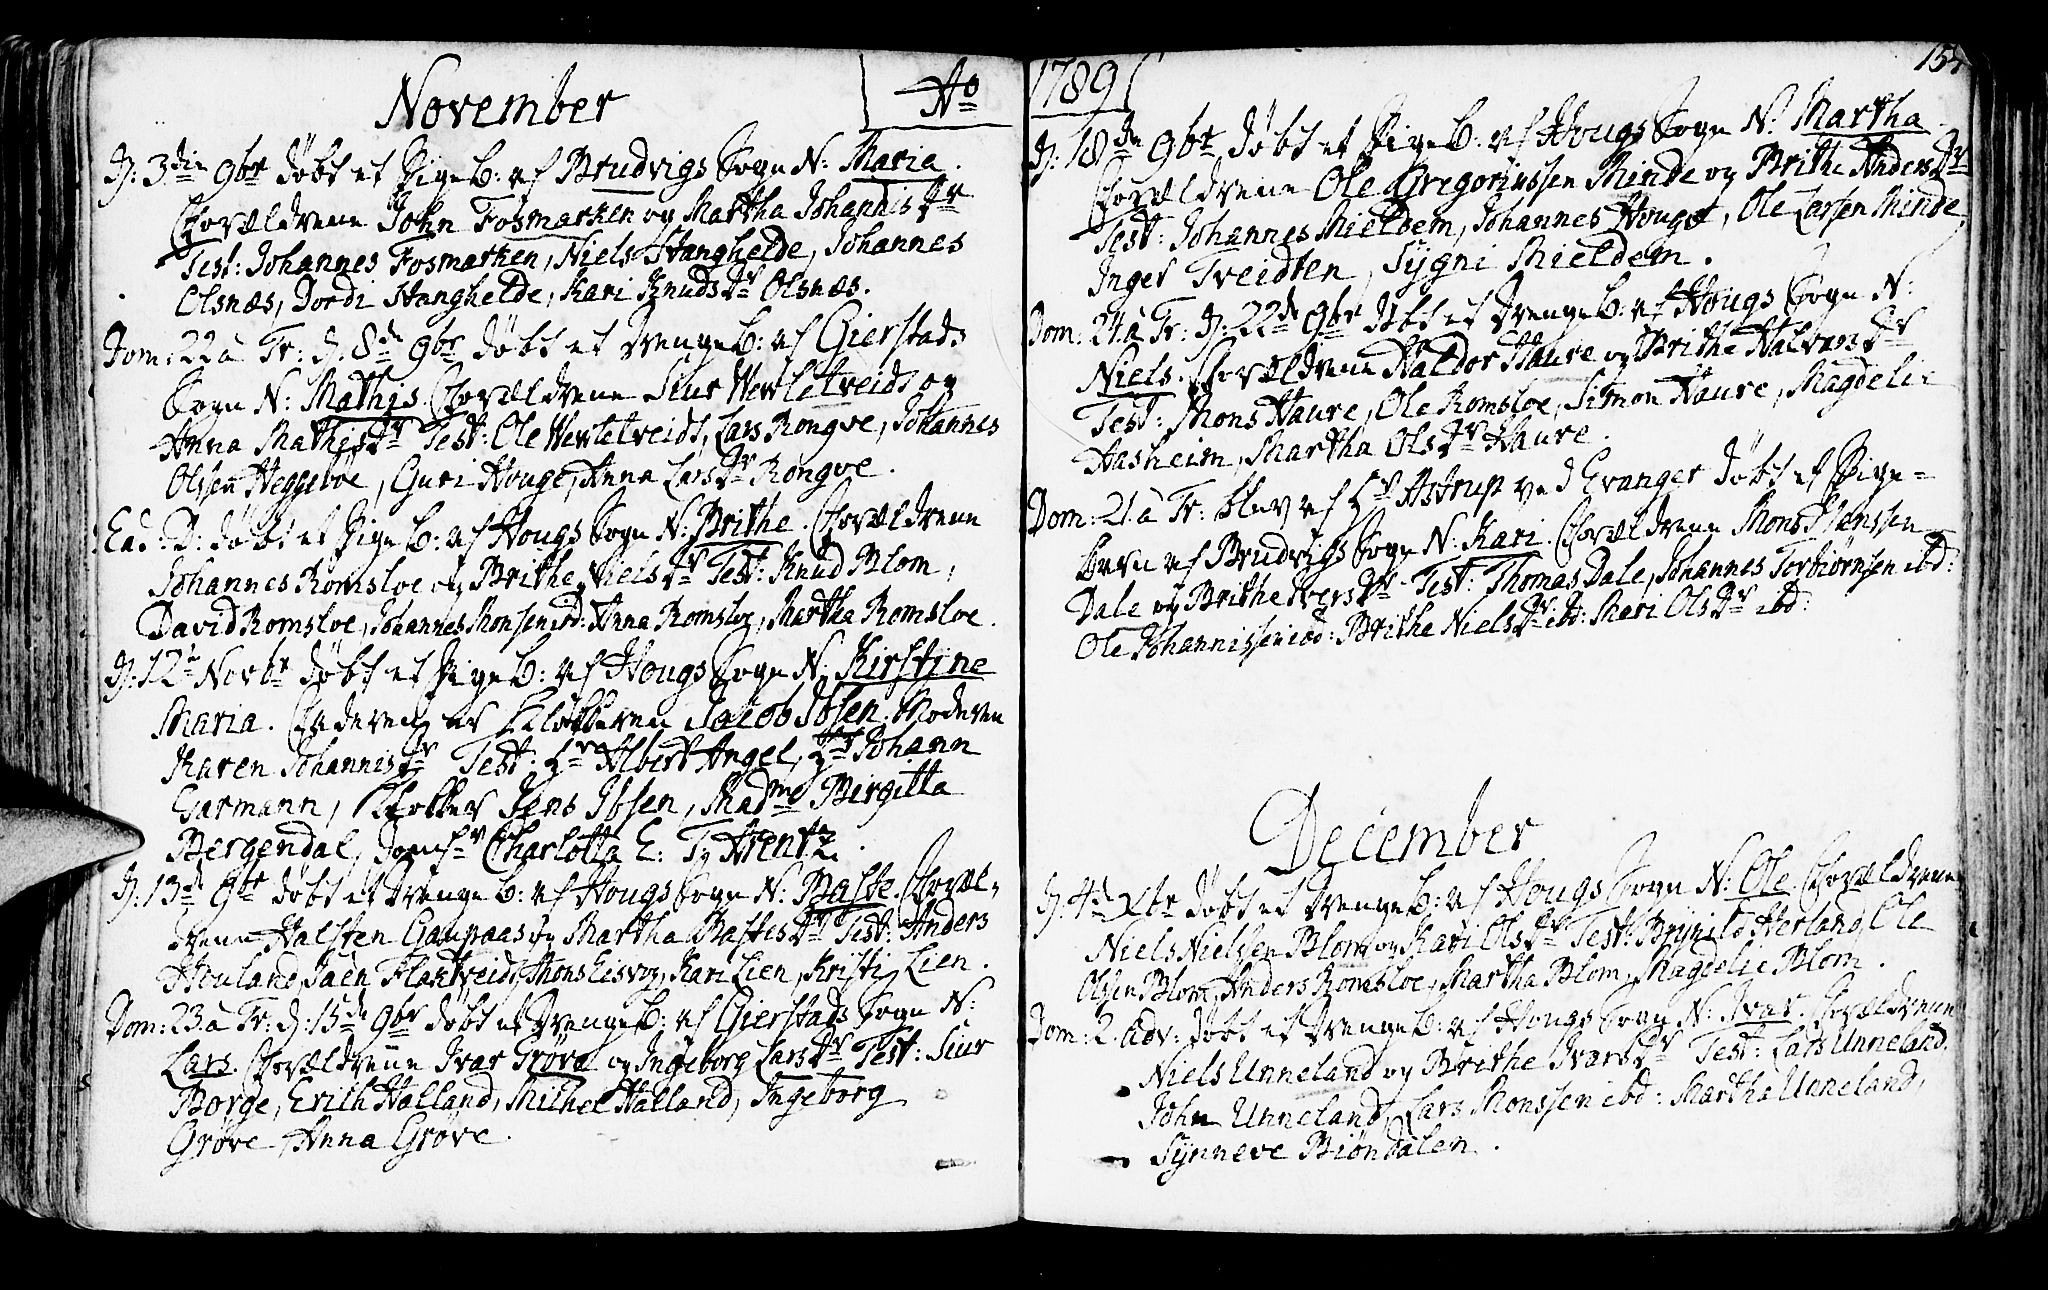 November
Ao
D: 3die 9br døbt et Pigeb: af Brudvigs Sogn N: Maria.
Forældrene John Fosmarken og Martha Johannis Dr
Test: Johannes Fosmarken, Niels Stanghelde, Johannes
Olsnæs, Dordi Stanghelde, Kari Knuds Dr Olsnæs.
Dom: 22 à Tr: d. 8de 9br døbt et Drengeb: af Gierstads
Sogn N: Mathis. Forældrene Siur Wevletveidt og
Anna Mathis Dr Test: Ole Wevletveidt, Lars Rongve, Johannes
Olssen Heggebøe, Guri Houge, Anna Lars Dr Rongve.
Ead: D: døbt et Pigeb: af Hougs Sogn N: Brithe. Forældrene
Johannes Romsloe og Brithe Niels Dr Test: Knud Blom,
David Romsloe, Johannes Monsen ibd: Anna Romsloe, Martha Romsloe.
D: 12te Novbr døbt et Pigeb: af Hougs Sogn N: Kirstine
Maria. Faderen er Klokkeren Jacob Ibsen, Moderen
Karen Johannis Dr Test: Hr Albert Angel, Hr Johann
Garmann, Klokker Jens Ibsen, Madme Birgitta
Bergendal, Jomfr Charlotta E: T, Arentz.
D: 13de 9br døbt et Drengeb: af Hougs Sogn N: Baste. Foræl-
drene Halsten Gaupaas og Martha Bastes Dr Test: Anders
Houland, Jaen Flaktveidt, Mons Eisvog, Kari Lien, Kristi Lien.
Dom: 23 à Tr: d: 15de 9br døbt et Drengeb: af Gierstads Sogn N:
Lars. Forældrene Ivar Grøve og Ingeborg Lars Dr Test: Siur
Borge, Erich Halland, Michel Halland, Ingeborg
Grøve, Anna Grøve.
1789
D: 18de 9br døbt et Pigeb: af Hougs Sogn N: Martha.
Forældrene Ole Gregoriussen Minde og Brithe Anders Dr
Test: Johannes Mieldem, Johannes Houge, Ole Larsen Minde,
Inger Tveidten, Sygni Mieldem.
Dom: 24 à Tr: d: 22de 9br døbt et Drengeb: af Hougs Sogn N:
Niels. Forældrene Haldor Haure og Brithe Halvors Dr
Test: Mons Haure, Ole Romsloe, Simon Haure, Magdelie
Aasheim, Martha Ols Dr Haure.
Dom: 21 à Tr: blev af Hr Astrup ved Evanger døbt et Pige-
barn af Brudvigs Sogn N: Kari. Forældrene Mons Hanssen
Dale og Brithe Ivers Dr Test: Thomas Dale, Johannes Torbiørnsen ibd:
Ole Johannissen ibd: Brithe Niels Dr ibd: Mari Ols Dr ibd:
December
D: 4de Xbr døbt et Drengeb: af Hougs Sogn N: Ole. Forældrene
Niels Nielssen Blom og Kari Ols Dr Test: Brynild Herland, Ole
Olssen Blom, Anders Romsloe, Martha Blom, Magdelie Blom.
Dom: 2. Adv: døbt et Drengeb: af Hougs Sogn N: Ivar. Forældrene
Niels Unneland og Brithe Ivars Dr Test: Lars Unneland,
John Unneland, Lars Monssen ibd: Martha Unneland,
Synneve Biøndalen.